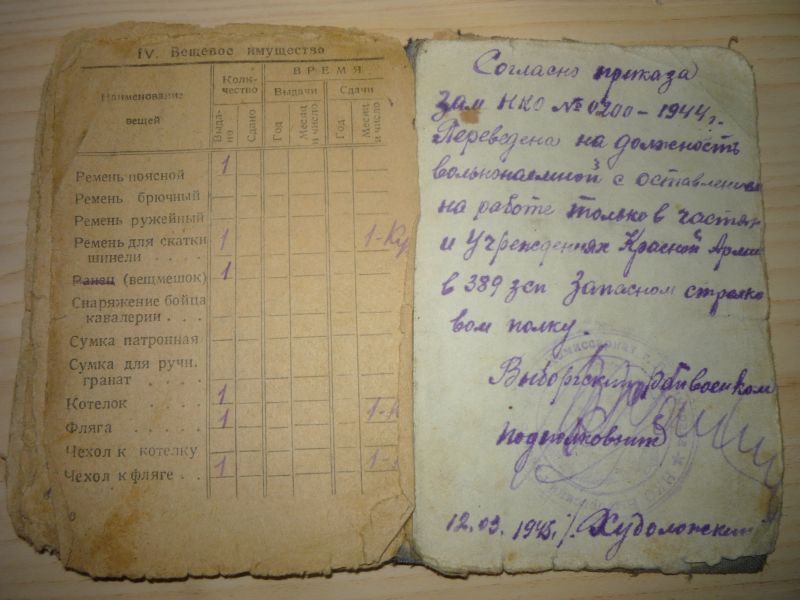 IV. Вещевое имущество
Наименование вещей
Количество
ВРЕМЯ
Выдачи
Сдачи
Выдано
Сдано
Год
Месяц и число
Год
Месяц и число
Ремень поясной 1
Ремень брючный
Ремень ружейный
Ремень для скатки
шинели . . . . 1 1-
Ранец (вещмешок) 1
Снаряжение бойца
кавалерии . . . .
Сумка патронная
Сумка для ручн.
гранат . . . . .
Котелок . . . . 1
Фляга . . . . . 1 1-
Чехол к котелку
Чехол к фляге . . 1 1-
Согласно приказа
Зам НКО № 0200-1944 г.
Переведена на должность
вольнонаемной с оставлением
на работе только в частях
и Учреждениях Красной Армии
в 389 зсп Запасном стрелко
вом полку.
Выборгский
подполковник
12.03.1945 г.